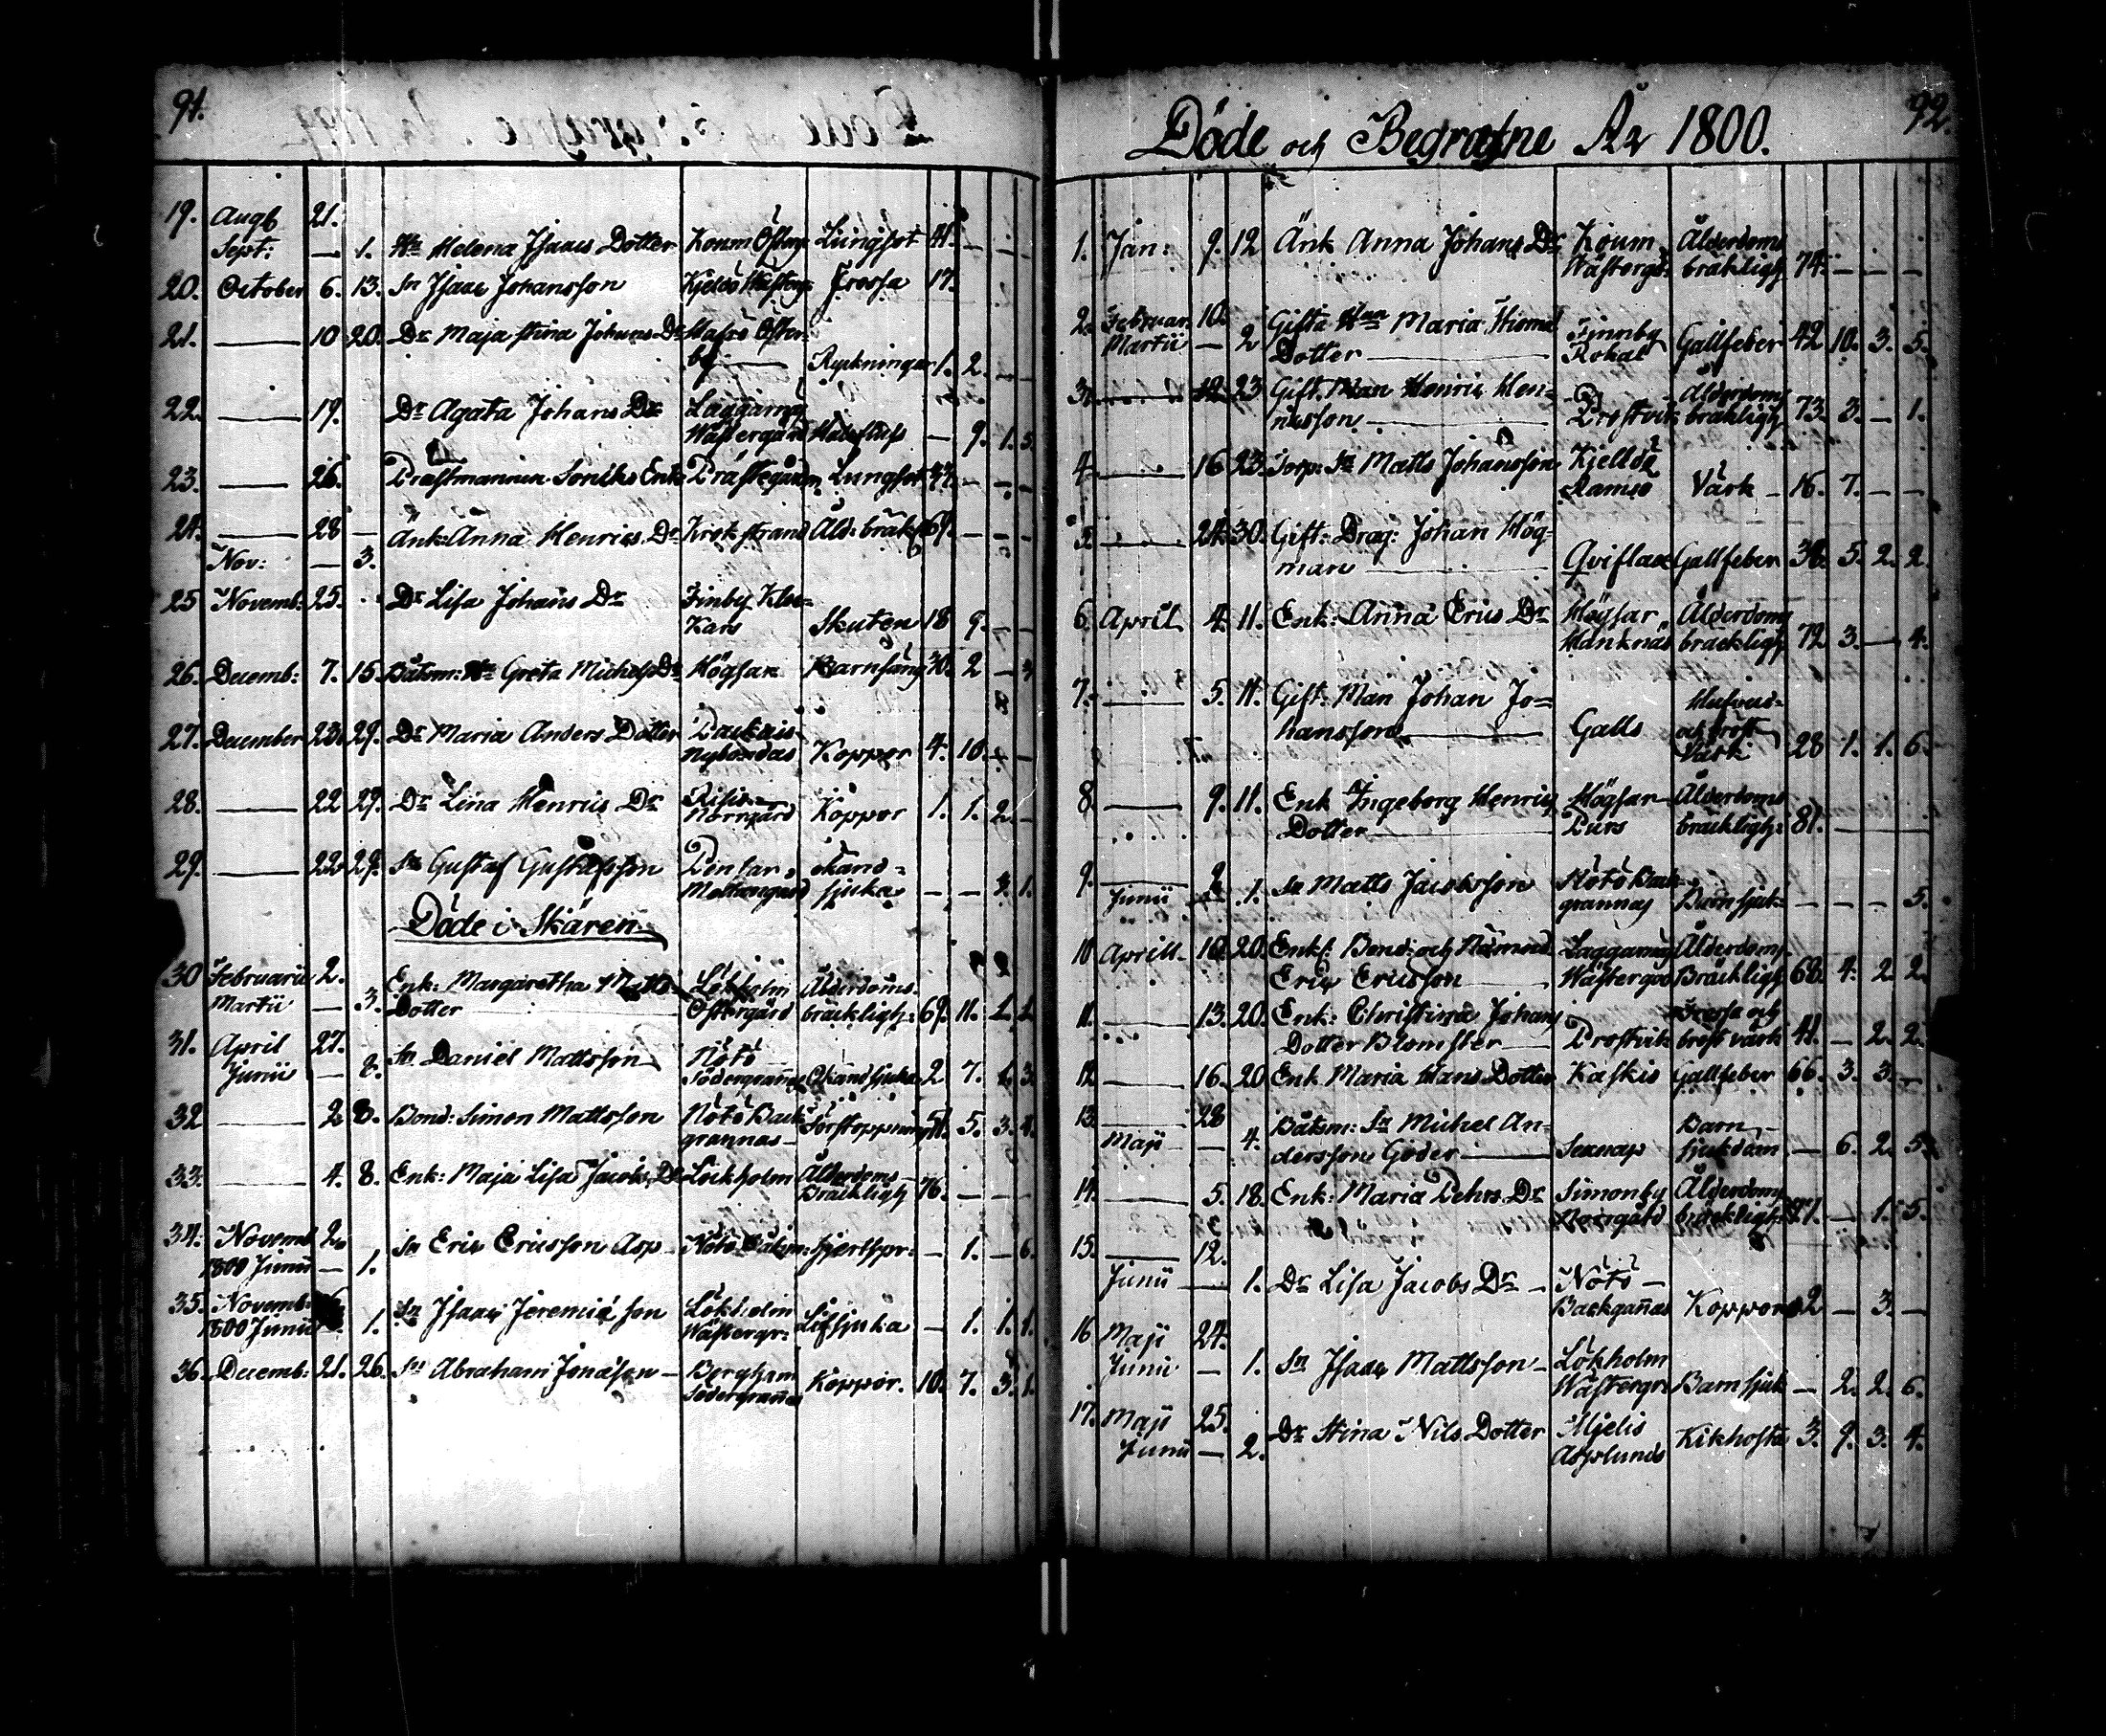 91.
19. Augt 21.
Sept. — 1. Hu Helena Isaacs Dotter Korum Österg: Lungsot 41. — — —
20. October 6. 13. Sn Isaac Johansson Kjeldö Wästerg: Frossa 17.
21. — 10 20. Dr Maja Stina Johans Dr Öster-
by — Ryckningar 1. 2. — —
22. — 19. Dr Agata Johans Dr Laggarnäs
Wästergård — 9. 1. 5.
23. — 26. Enk: Prästegården Lungsot — — —
24. — 28 — Änk: Anna Henrics Dr Krokstrand Åld: bräkl: 69. — — —
Nov: — 3.
25 Novemb: 25. Dr Lisa Johans Dr Finby Kloc-
kars Skuten 18 9. — —
26. Decemb: 7. 15. Båtsm: Hu Greta Michels Dr Högsar Barnsäng 30. 2 —
27. December 23. 29. Dr Maria Anders Dotter Packais
Nybondas Koppor 4. 10. — —
28. — 22 29. Dr Lina Henrics Dr Risis
Norrgård Koppor 1. 1. 2. —
29. — 22. 29. Sn Gustaf Gustafsson Pensar
Mellangård okänd-
sjuka — — 3. 1.
Döde i Skären
30 Februarii 2. Enk: Margaretha Matts Lökholm Ålderdoms-
Martii — 3. Dotter — Östergård bräckligh: 69. 11. 1. 1.
31. April 27. Sn Daniel Mattsson Nötö
Junii — 8. Södergrannas Okänd sjuka 2 7. 1. 3.
32 — 2 8. Bond: Simon Mattsson Nötö Back-
grannas — 51. 5. 3. 4.
33. — 4. 8. Enk: Maja Lisa Jacobs Dr Löckholm Ålderdoms
Bräckligh 76. — — —
34. Novemb 2. Sn Eric Ericsson Asp Nötö Båtsm: Hjertspr: — 1. — 6.
1800 Junii — 1.
35. Novemb: Sn Isaac Jeremiæson Lökholm
1800 Junii — 1. Wästergr: Lifsjuka — 1. 1. 1.
36. Decemb: 21. 26. Sn Abraham Jonasson — Bergham
Södergrannas Koppor. 10. 7. 3. 1.
92.
Döde och Begrafne År 1800.
1. Jan: 9. 12 Änk Anna Johans Dr Korum Ålderdoms
Wästergd: bräkligh 74. — — —
2. Februar. 10. Gifta Hun Maria Finnby
Martii — 2 Dotter — Rokas Gallfeber 42 10. 3. 5.
3. — 12 23 Gift. Man Henric Hen- Ålderdoms
ricsson — Prostvik bräkligh 73. 3. — 1.
4. — 16 23. Sn Matts Johansson Kjeldö
Ramsö Värk — 16. 7. — —
5. — 24. 30. Gift: Drag: Johan Hög-
man — Qviflax Gallfeber 38. 5. 2. 2.
6. April 4. 11. Enk: Anna Erics Dr Högsar Ålderdoms
Hanknäs bräckligh 72 3. — 4.
7. — 5. 11. Gift: Man Johan Jo- Hufvud-
hansson — Galts och bröst
Värk 28 1. 1. 6.
8. — 9. 11. Enk Ingeborg Henrics Högsar Ålderdoms
Dotter — Purs bräckligh: 81. — — —
9. — 9. Sn Matts Jacobsson Nötö Back-
Junii — 1. grannas Barnsjuk: — — — 5.
10 Aprill 10. 20. Enkl: Bond: och Nämnd: Laggarnäs Ålderdoms
Eric Ericsson — Wästergård Bräckligh 68. 4. 2. 2.
11. — 13. 20. Enk: Christina Johans Frossa och
Dotter Blomster — Prostvik bröst värk 41. — 2. 2.
12 — 16. 20 Enk Maria Hans Dotter Kaskis Gallfeber 66. 3. 3. —
13. — 28 Båtsm: Sn Michel An- Barn-
Maji — 4. dersson Göder — sjukdom — 6. 2. 5.
14. — 5. 18. Enk: Maria Pehrs Dr Simonby Ålderdoms
Norrgård bräckligh: — 1. 5.
15. — 12.
Junii — 1. Dr Lisa Jacobs Dr — Nötö —
Backgrañas Koppor 2 — 3. —
16 Maji 24.
Junii — 1. Sn Isaac Mattsson — Lökholm
Wästergr: Barnsjuk — 2. 2. 6.
17. Maji 25. Dr Stina Nils Dotter Mjelis
Junii — 2. Asplunds Kikhosta 3. 9. 3. 4.